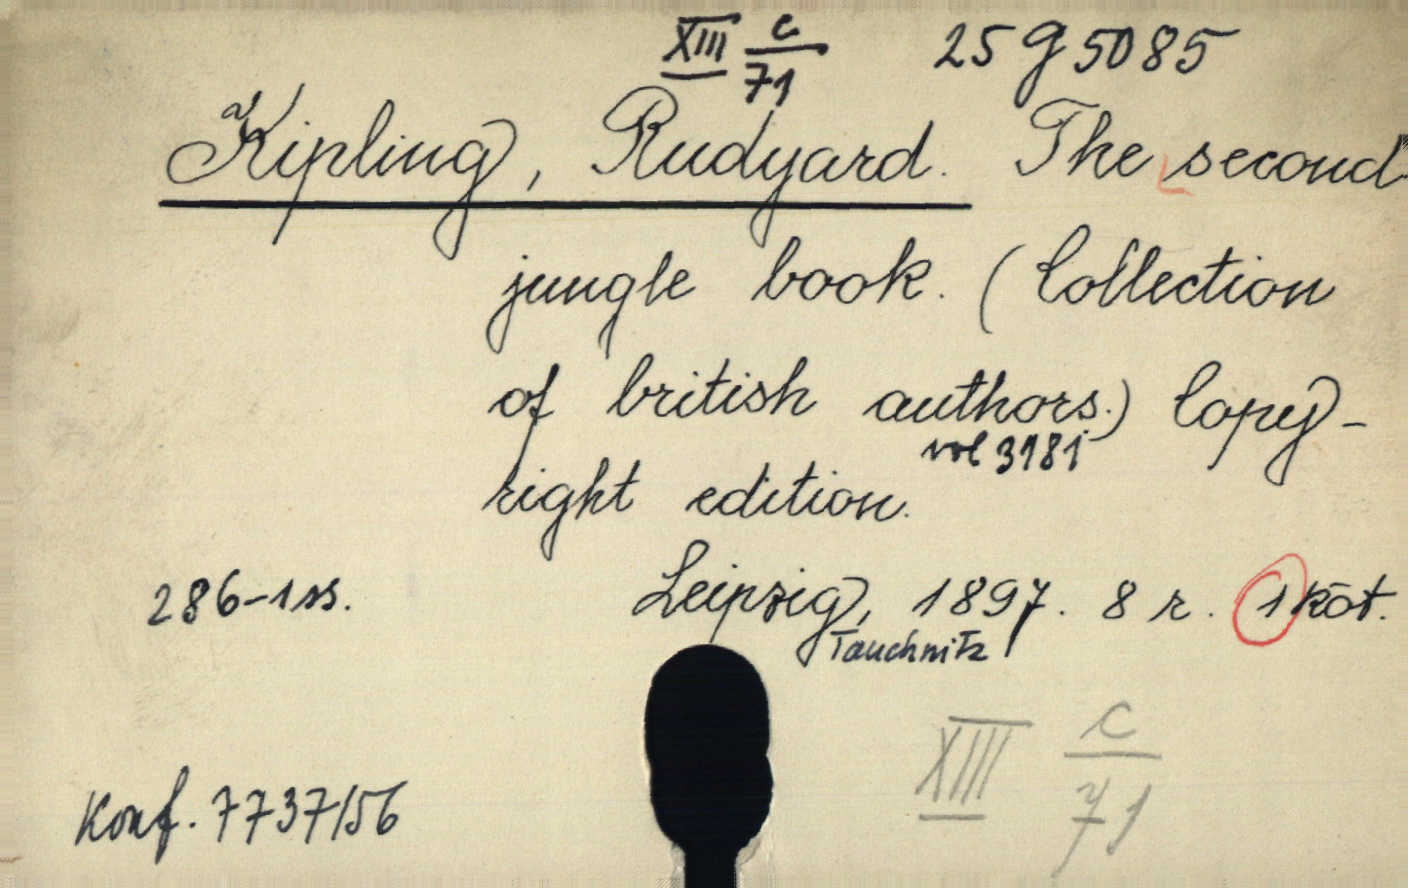 XIII c/71 25 g 5085
Kipling, Rudyard. The second
jungle book. (Collection
of british authors.) Copy-
vol 3181
right edition.
286-1 ss. Leipzig, 1897. 8 r. 1 köt.
Tauchnitz
XIII c/71
Konf. 7737/56